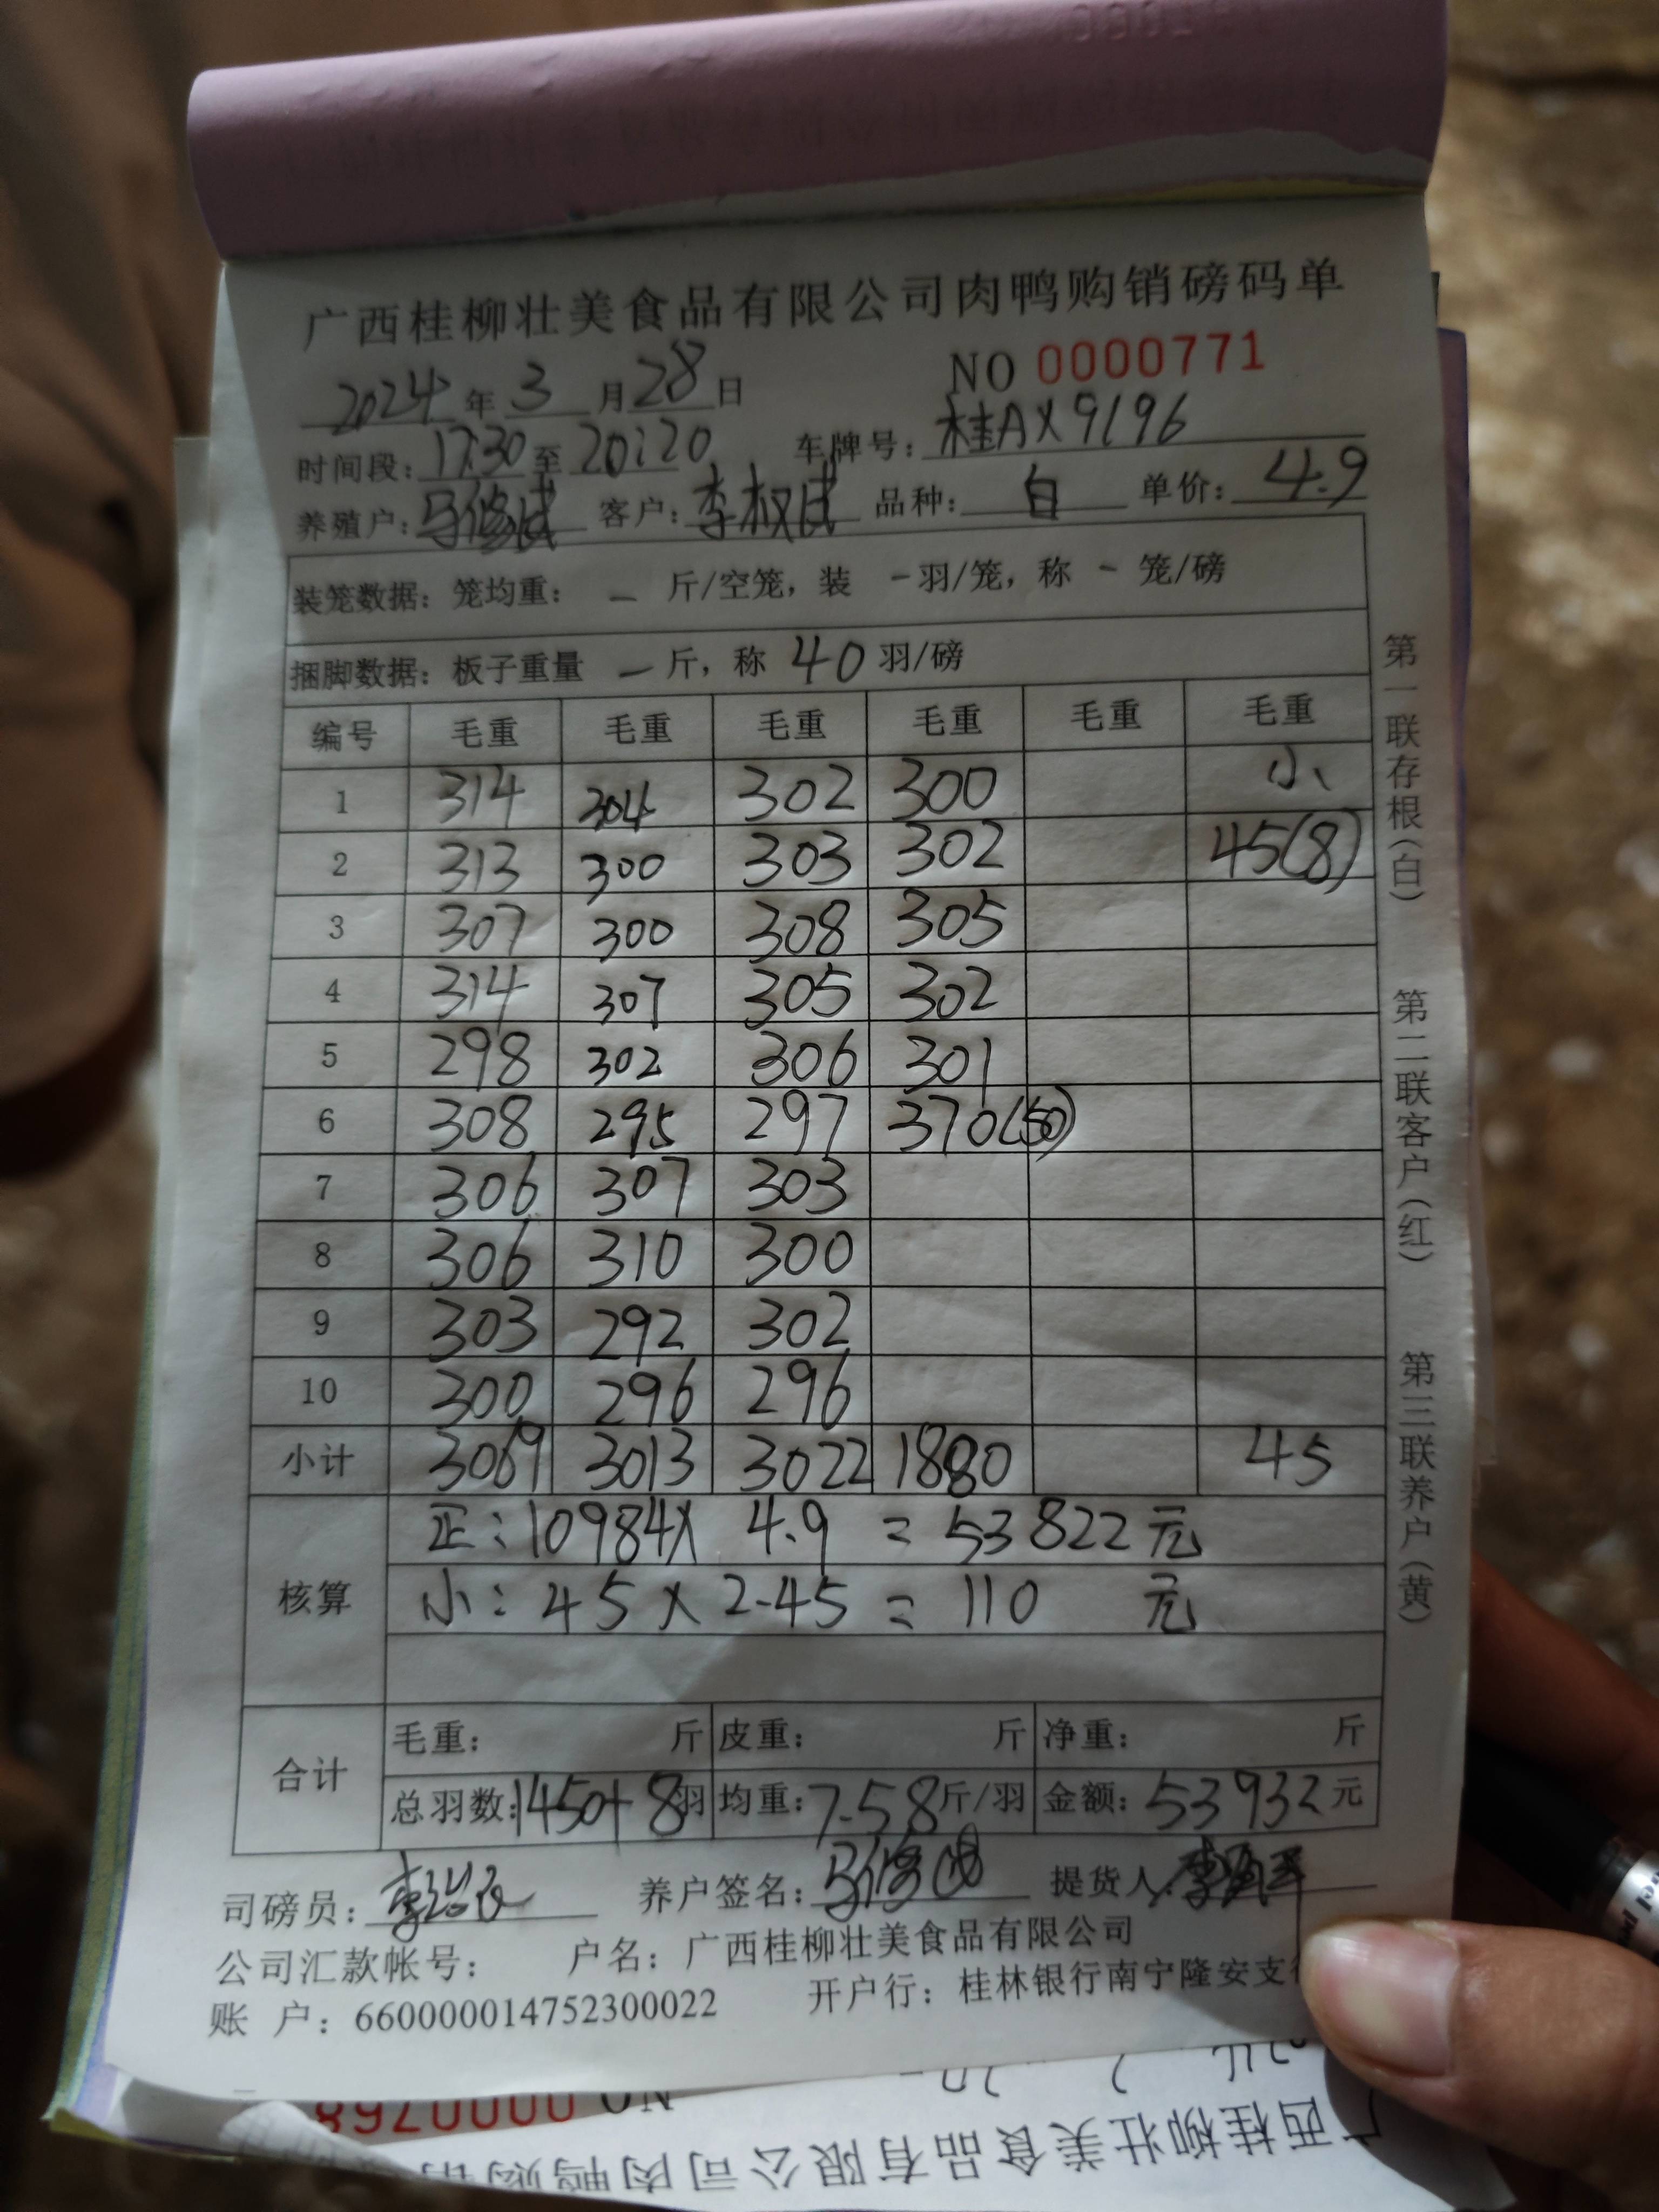 广西桂柳壮美食品有限公司肉鸭购销磅码单
2024年3月28日 NO 0000771
时间段：17:30至20:20 车牌号：桂AX9196
养殖户： 客户：李权成 品种：白 单价：4.9
装笼数据：笼均重： - 斤/空笼，装 - 羽/笼，称 - 笼/磅
捆脚数据：板子重量 - 斤，称 40 羽/磅
编号 毛重 毛重 毛重 毛重 毛重 毛重
1 314 304 302 300 小
2 313 300 303 302 45(8)
3 307 300 308 305
4 314 307 305 302
5 298 302 306 301
6 308 295 297 370(50)
7 306 307 303
8 306 310 300
9 303 292 302
10 300 296 296
小计 3069 3013 3022 1880 45
核算
正：10984X 4.9 = 53822 元
小：45 X 2.45 = 110 元
合计
毛重： 斤 皮重： 斤 净重： 斤
总羽数：1450+8羽 均重：7.58斤/羽 金额：53932元
司磅员： 养户签名： 提货人：
公司汇款帐号： 户名：广西桂柳壮美食品有限公司
账 户：660000014752300022 开户行：桂林银行南宁隆安支行
第一联存根（白） 第二联客户（红） 第三联养户（黄）
NO 0000768
广西桂柳壮美食品有限公司肉鸭购销